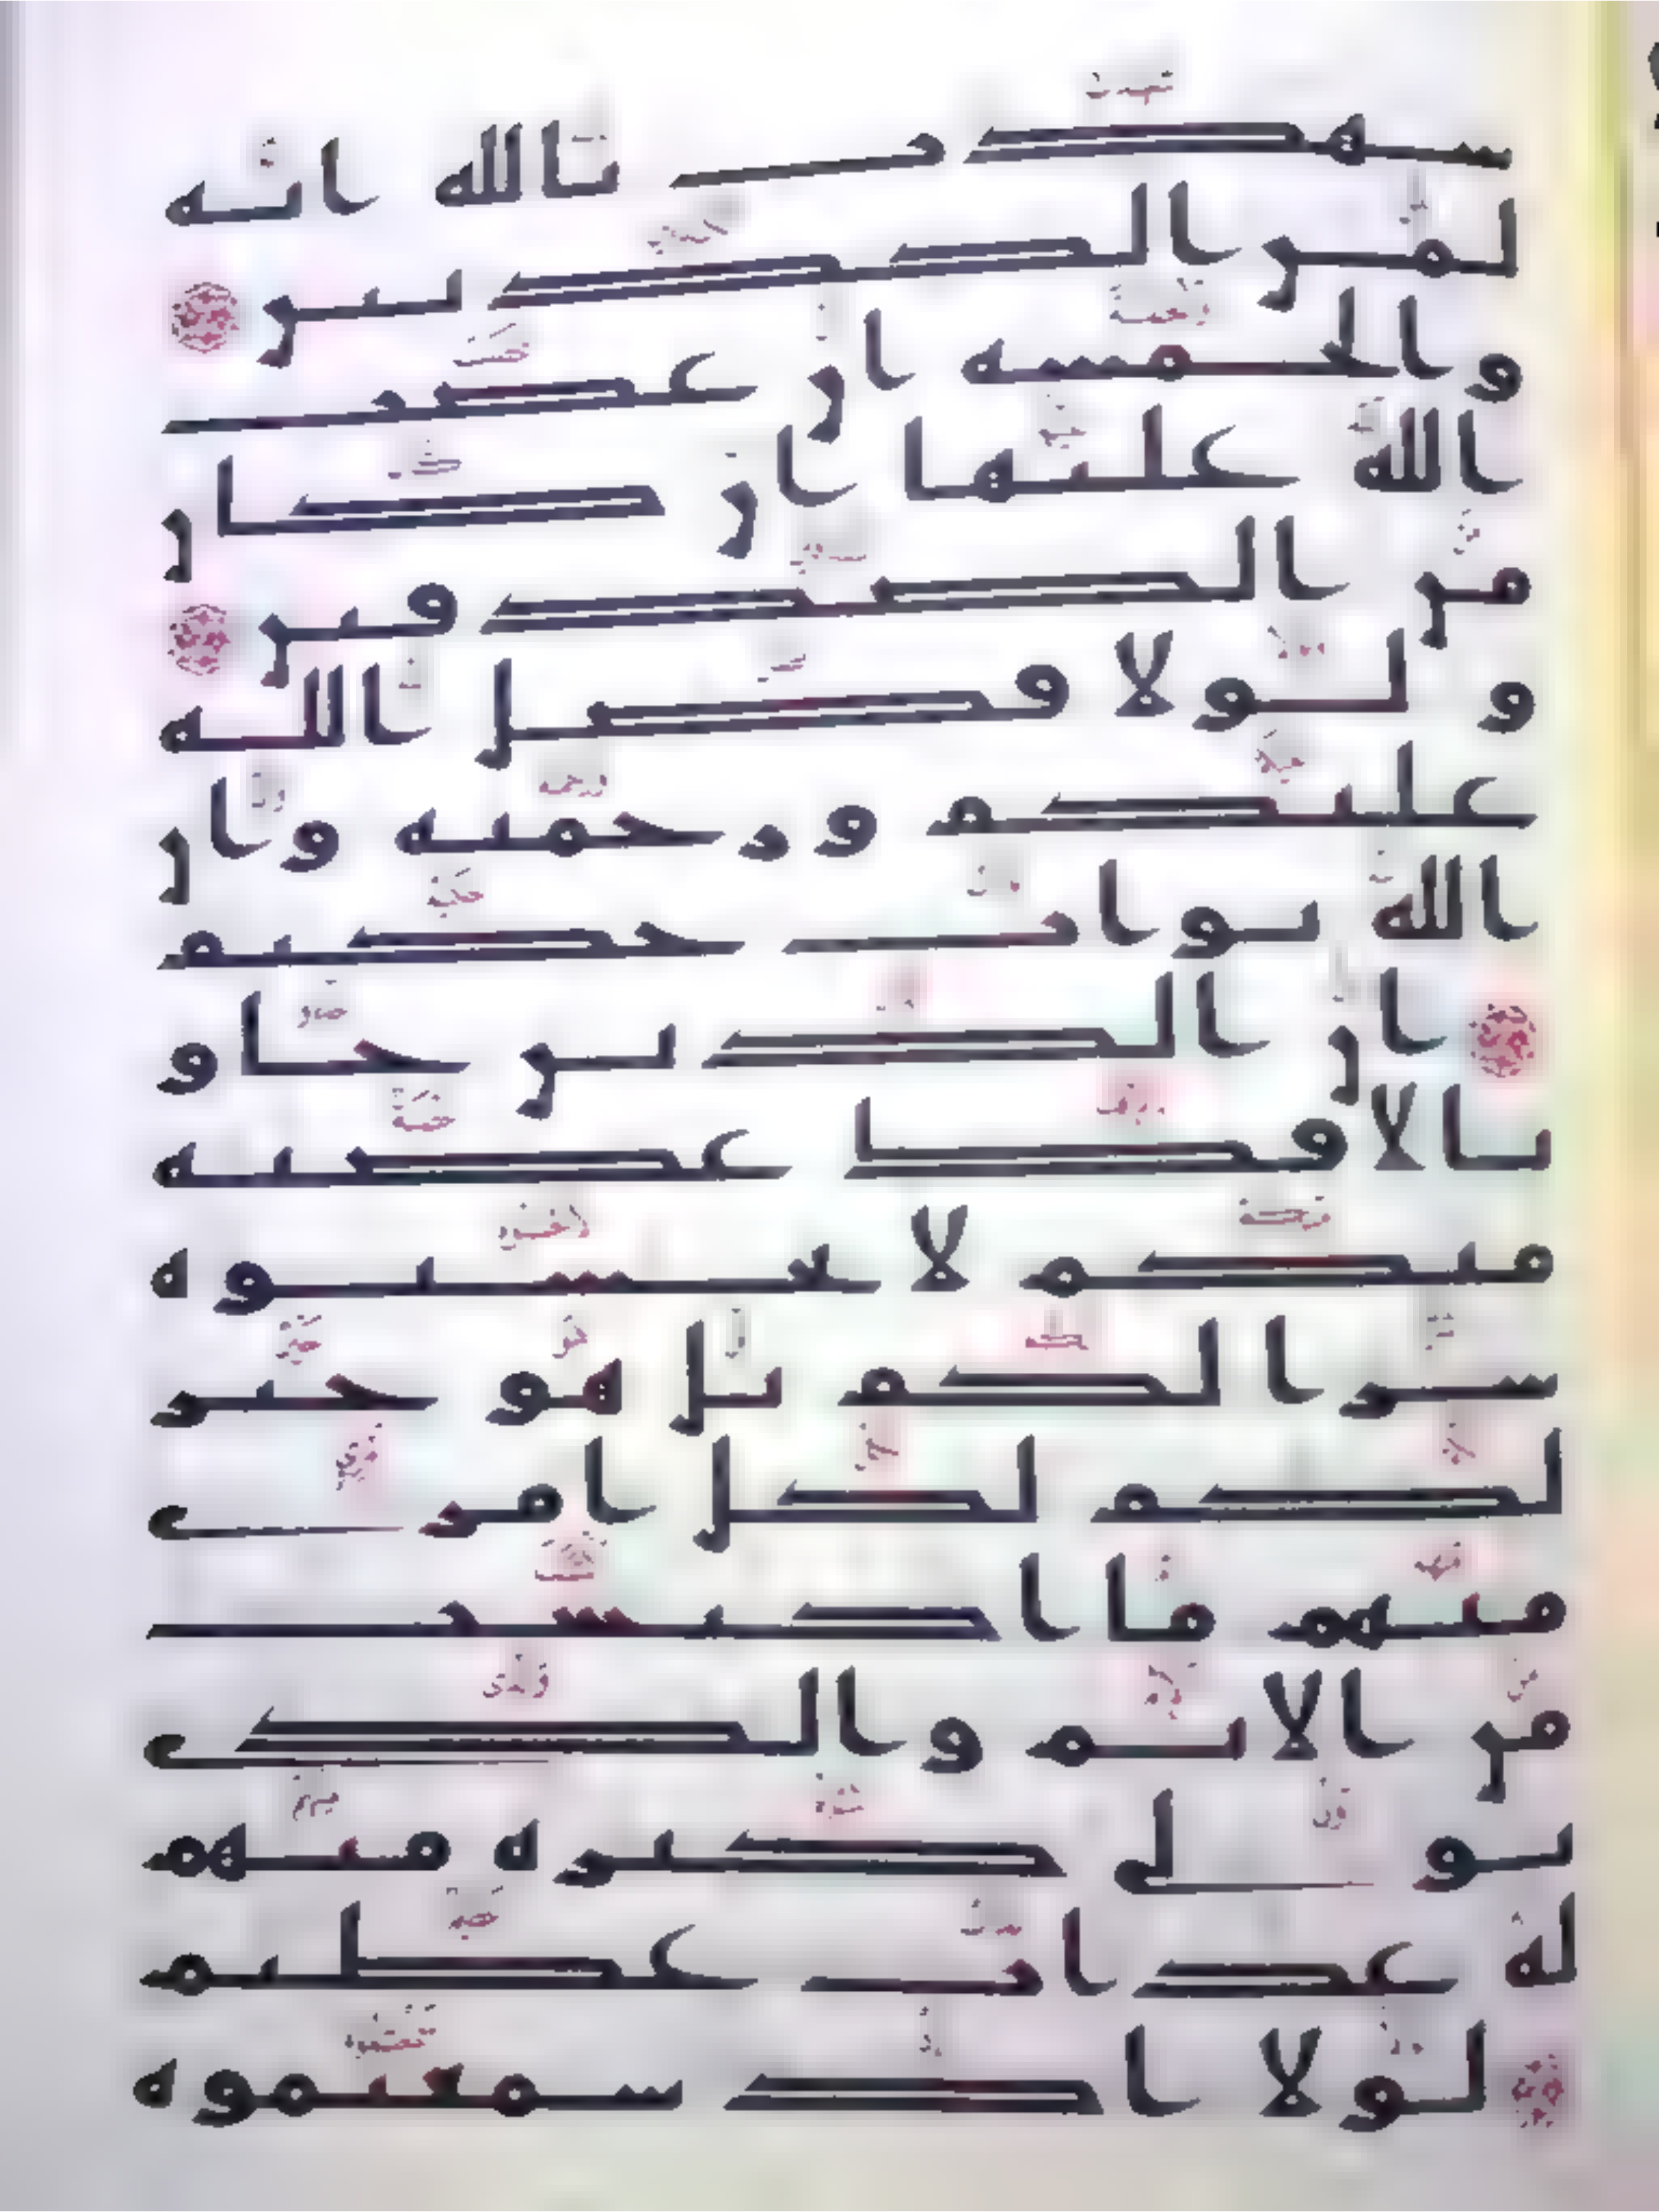 شهدت بالله انه
لمن الكذبين
والخمسة ان غضب
الله عليها ان كان
من الصدقين
و لولا فضل الله
عليكم ورحمته وان
الله تواب حكيم
ان الذين جاو
بالافك عصبة
منكم لا تحسبوه
شرا لكم بل هو خير
لكم لكل امرى
منهم ما اكتسب
من الاثم والذى
تولى كبره منهم
له عذاب عظيم
لولا اذ سمعتموه